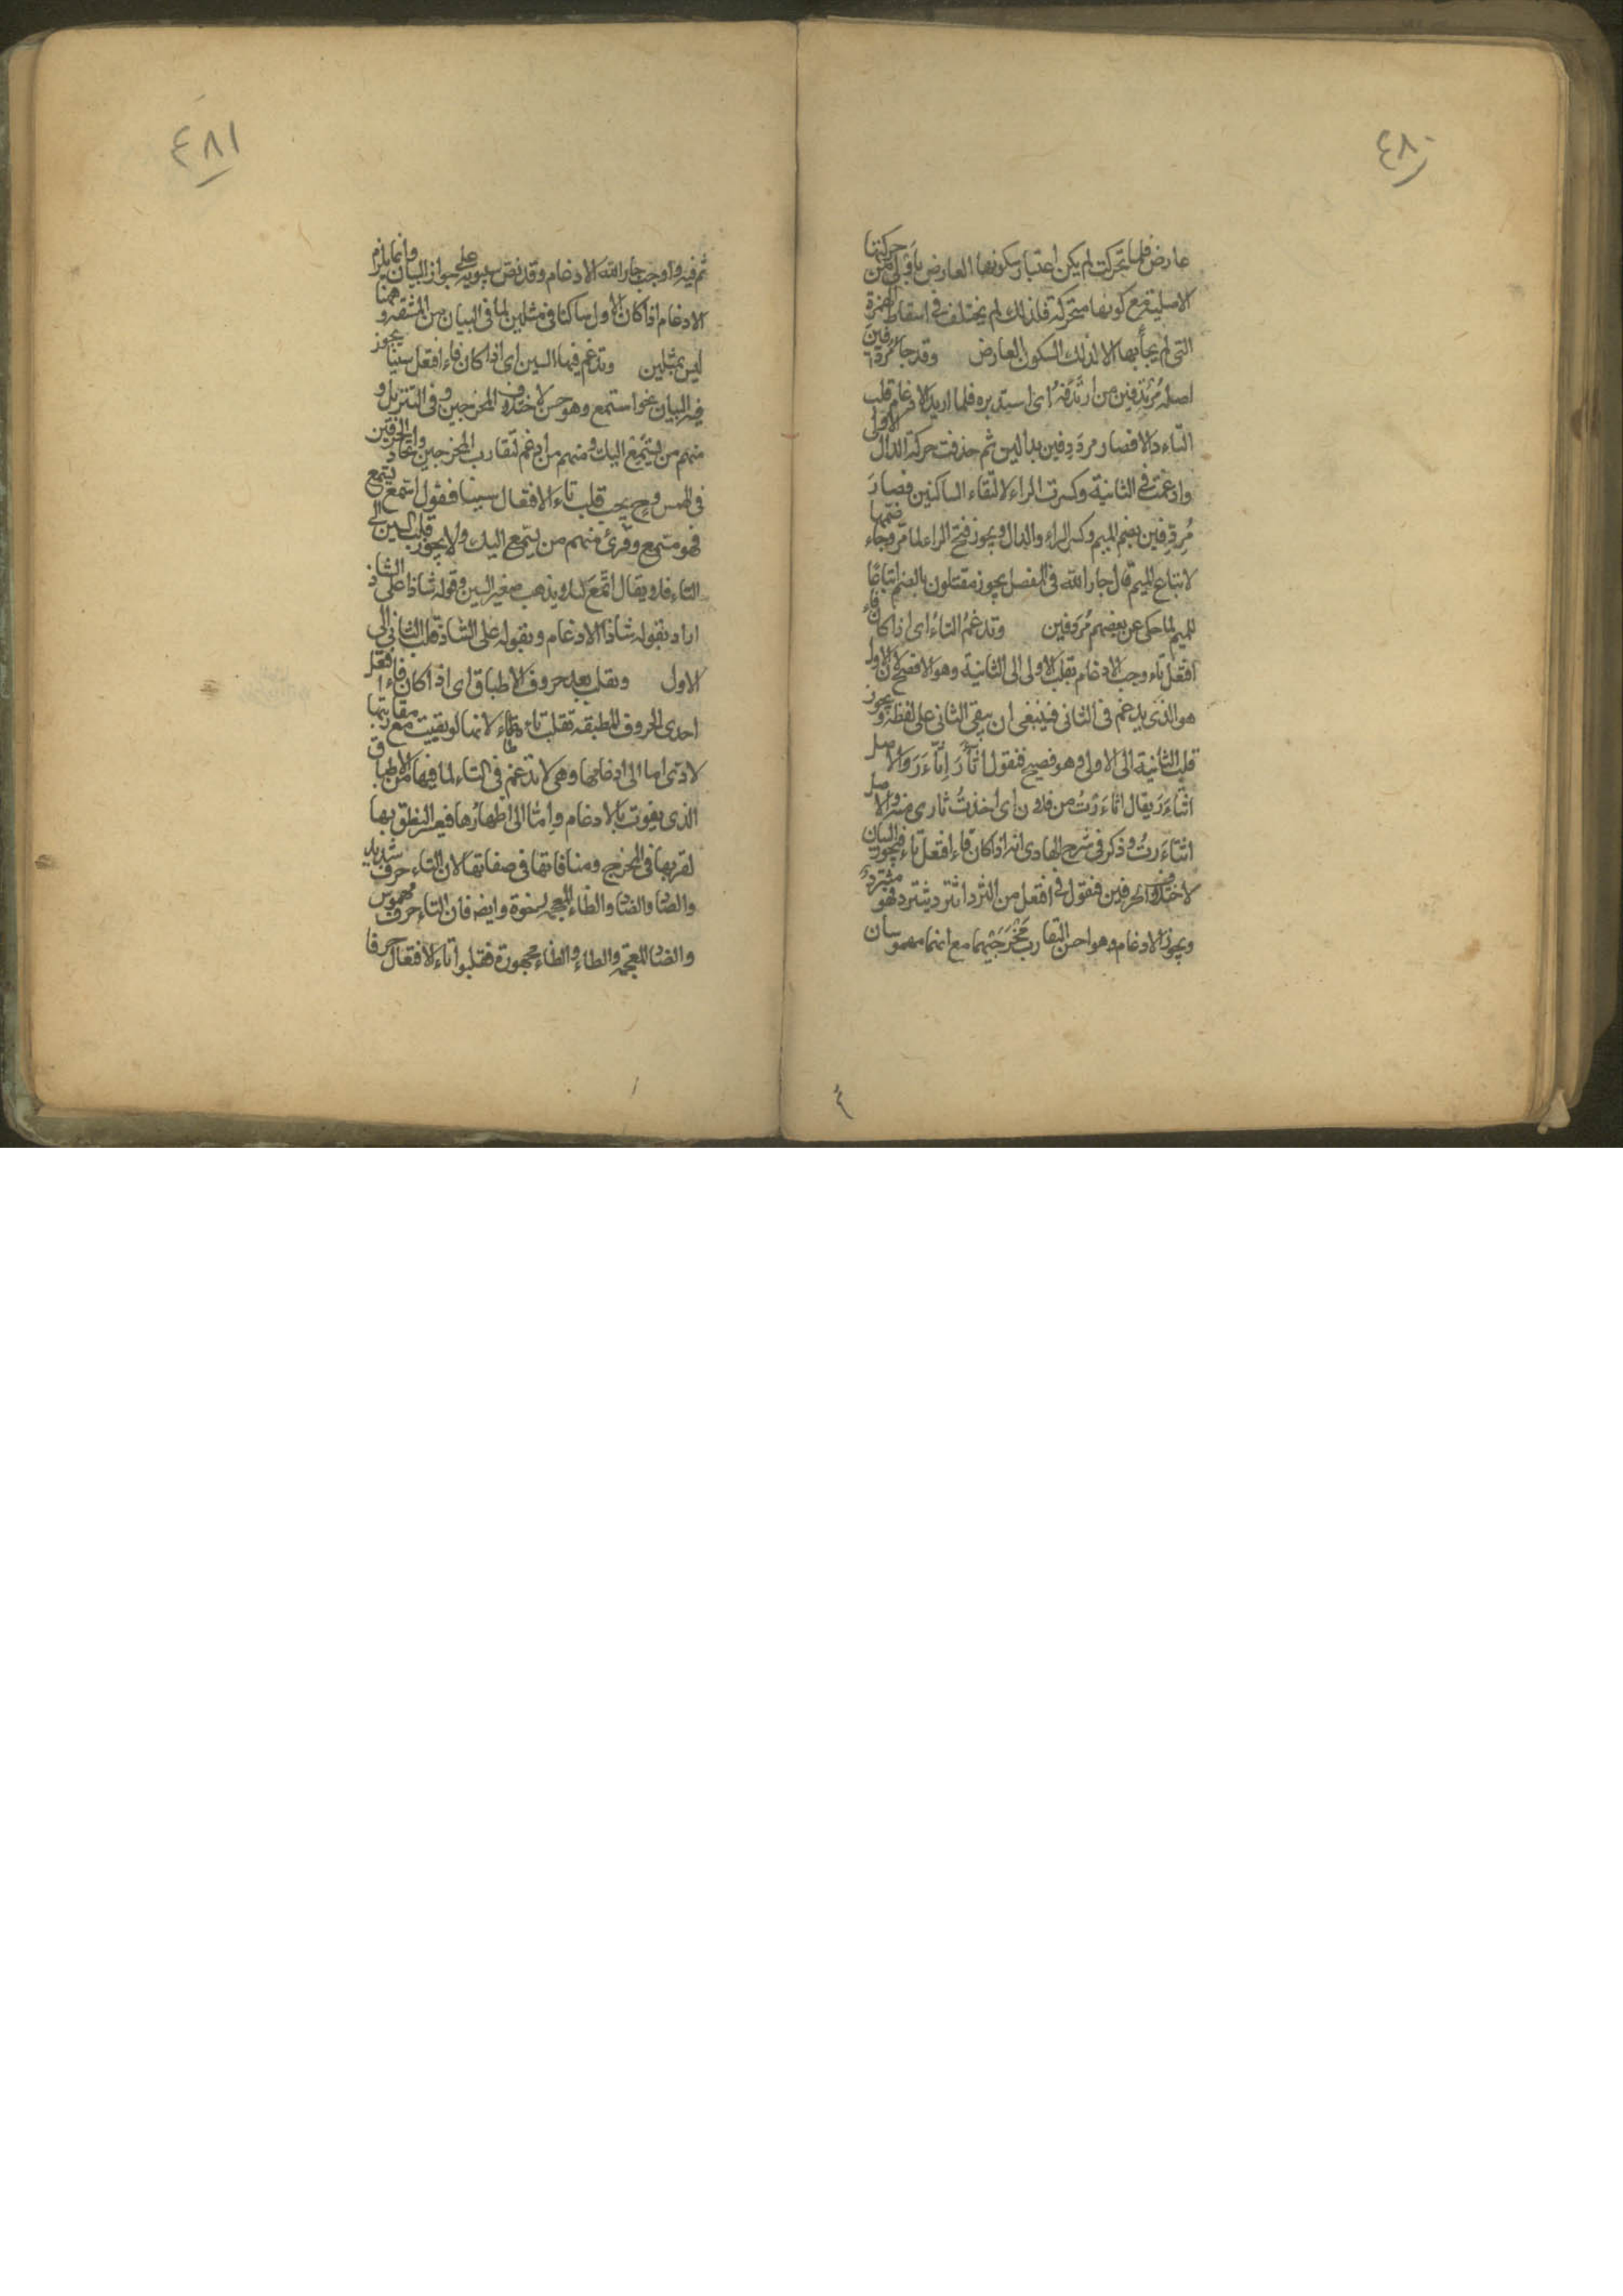 ٤٨٠
عارض فلما تحركت لم يكن اعتبار سكونها العارض باولى من حركتها
الاصلية مع كونها متحركة فلذلك لم يختلف في اسقاط الهمزة
التى لم يجأ بها الا لذلك السكون العارض وقد جاء مُردِفين
اصله مُرْتَدِفين من ارتَدَفهُ اى استدبره فلما اريد الادغام قلب
التاء دالا فصار مردَدِفين بدالين ثم حذفت حركة الدال الاولى
وادغمت في الثانية وكسرت الراء لالتقاء الساكنين فصارَ
مُرِدِفين بضم الميم وكسر الراء والدال ويجوز فتح الراء لما مر وجاء ضمها
لاتباع الميم قال جار الله فى المفصل يجوز مقتلون بالضم اتباعًا
للميم لما حكى عن بعضهم مُردفين وتدغمُ التاءُ اى اذا كان فاء
افتعل تاء وجب الادغام بقلب الاولى الى الثانية وهو الافصح لان الاول
هو الذى يدغم فى الثانى فينبغى ان يبقى الثانى على لفظه ويجوز
قلب الثانية الى الاولى وهو فصيح فنقول اثّأَرَ اِتّاءَرَ والاصل
اثتاءَرَ يقال اثاءَرْتُ من فلان اى اخذتُ ثارى منه والاصل
اثتاءَرتُ وذكر في شرح الهادى انه اذا كان فاء افتعل ثاء فيجوز البيان
لاختلاف الحرفين فنقول فى افتعل من الثرد اثترد يثترد فهو مثترد
ويجوز الادغام وهو احسن لتقارب مَخْرَجَيْهما مع انهما مهموسان
٤
٤٨١
ثم فيه واوجب جار الله الادغام وقد نص سيبويه على جواز البيان وانما يلزم
الادغام اذا كان الاول ساكنا فى مثلين لما فى البيان من المشقة وههنا
ليس بمثلين وتدغم فيها السين اى اذا كان فاء افتعل سينا يجوز
فيه البيان نحو استمع وهو حسن لاختلاف المخرجين وفى التنزيل و
منهم من يستمِع اليك ومنهم من ادغم لتقارب المخرجين واتحاد الحرفين
فى الهمس وح يجب قلب تاءَ الافتعال سينا فنقول اسّمع يسّمع
فهو مسّمع وقرئ منهم من يسّمع اليك ولا يجوز قلب السين الى
التاء فلا يقال اتّمَعَ لئلا يذهب صفير السين وقوله شاذا على الشاذ
اراد بقوله شاذا الادغام وبقوله على الشاذ قلب الثانى الى
الاول وتقلب بعد حروف الاطباق اى اذا كان فاء افتعل
احدى الحروف المطبقة تقلب تاء طاء لانها لو بقيت مع مقاربتها
لادّى اما الى ادغامها وهى لا تدغم فى التاء لما فيها من الاطباق
الذى يفوت بالادغام واِمّا الى اظهارها فيعسر النطق بها
لقربها فى المخرج ومنافاتها فى صفاتها لان التاء حرف شديد
والصاد والضاد والظاء المعجمة رخوة وايضا فان التاء حرف مهموس
والضاد المعجمة والطاء والظاء مجهورة فقلبوا تاء الافتعال حرفا